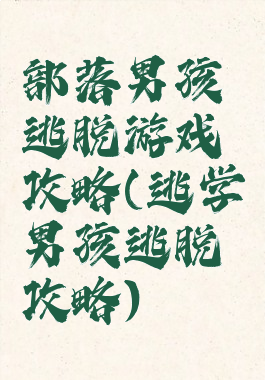 部落男孩
逃脱游戏
攻略(逃学
男孩逃脱
攻略)